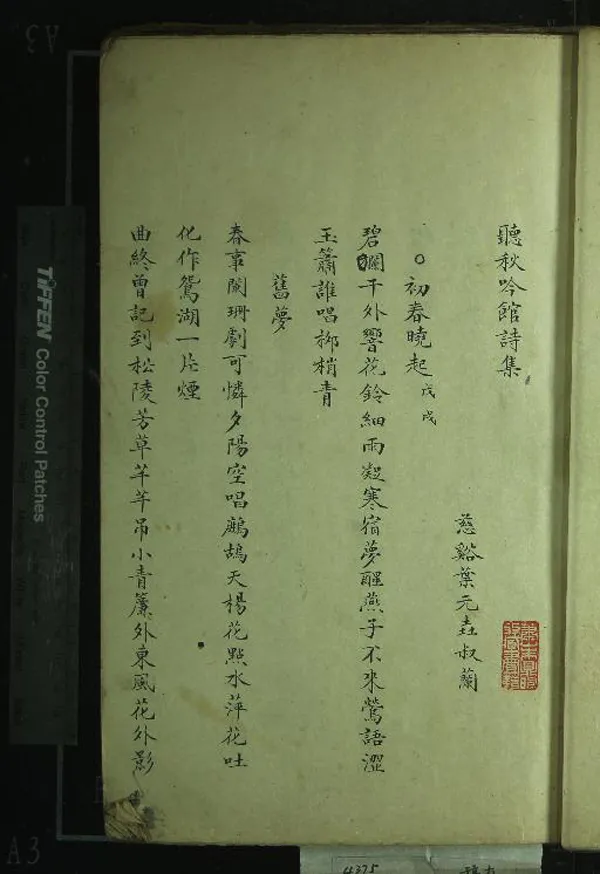 聽秋吟館詩集
慈谿葉元垚叔蘭
初春曉起 戊戌
碧闌干外響花鈴細雨凝寒宿夢醒燕子不來鶯語澀
玉簫誰唱柳梢青
舊夢
春事闌珊劇可憐夕陽空唱鷓鴣天楊花點水萍花吐
化作鴛湖一片煙
曲終曾記到松陵芳草芊芊吊小青簾外東風花外影
TIFFEN Color Control Patches
A3
A3
4375